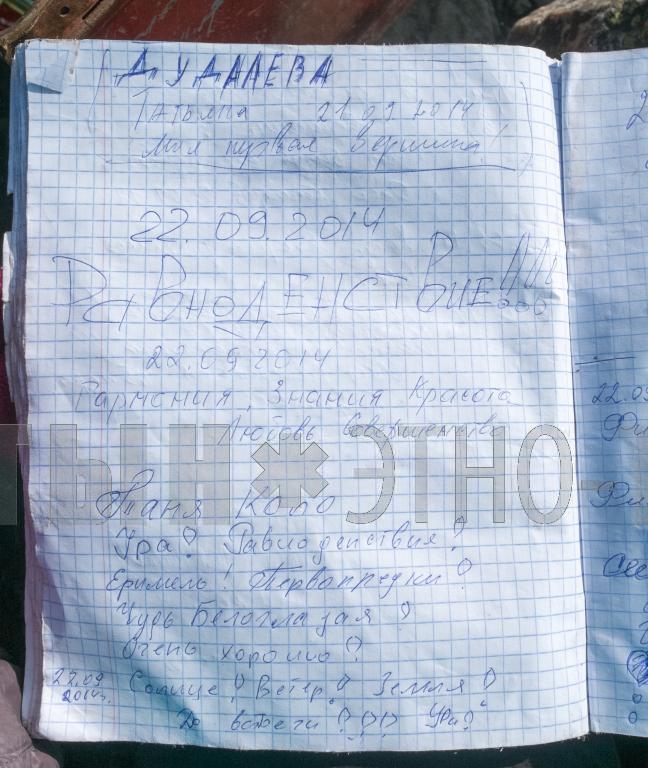 ДУДАЛЕВА
Татьяна 21 09 2014
Моя первая вершина!
22.09.2014
РавнодЕНСТВиЕ!!!
22.09 2014
Гармония, Знания Красота
Любовь Совершенство
ТЫН ЭТНО-
Таня Коло
Ура! Равноденствия!
Еримель! Первопредки!
Чудь Белоглазая!
Очень хорошо!
22.09 Солнце! Ветер! Земля!
2014г.
До встречи!!! Ура!
22.09